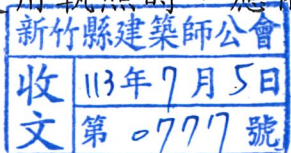 用執照時
新竹縣建築師公會
收文
113年7月5日
第0777號